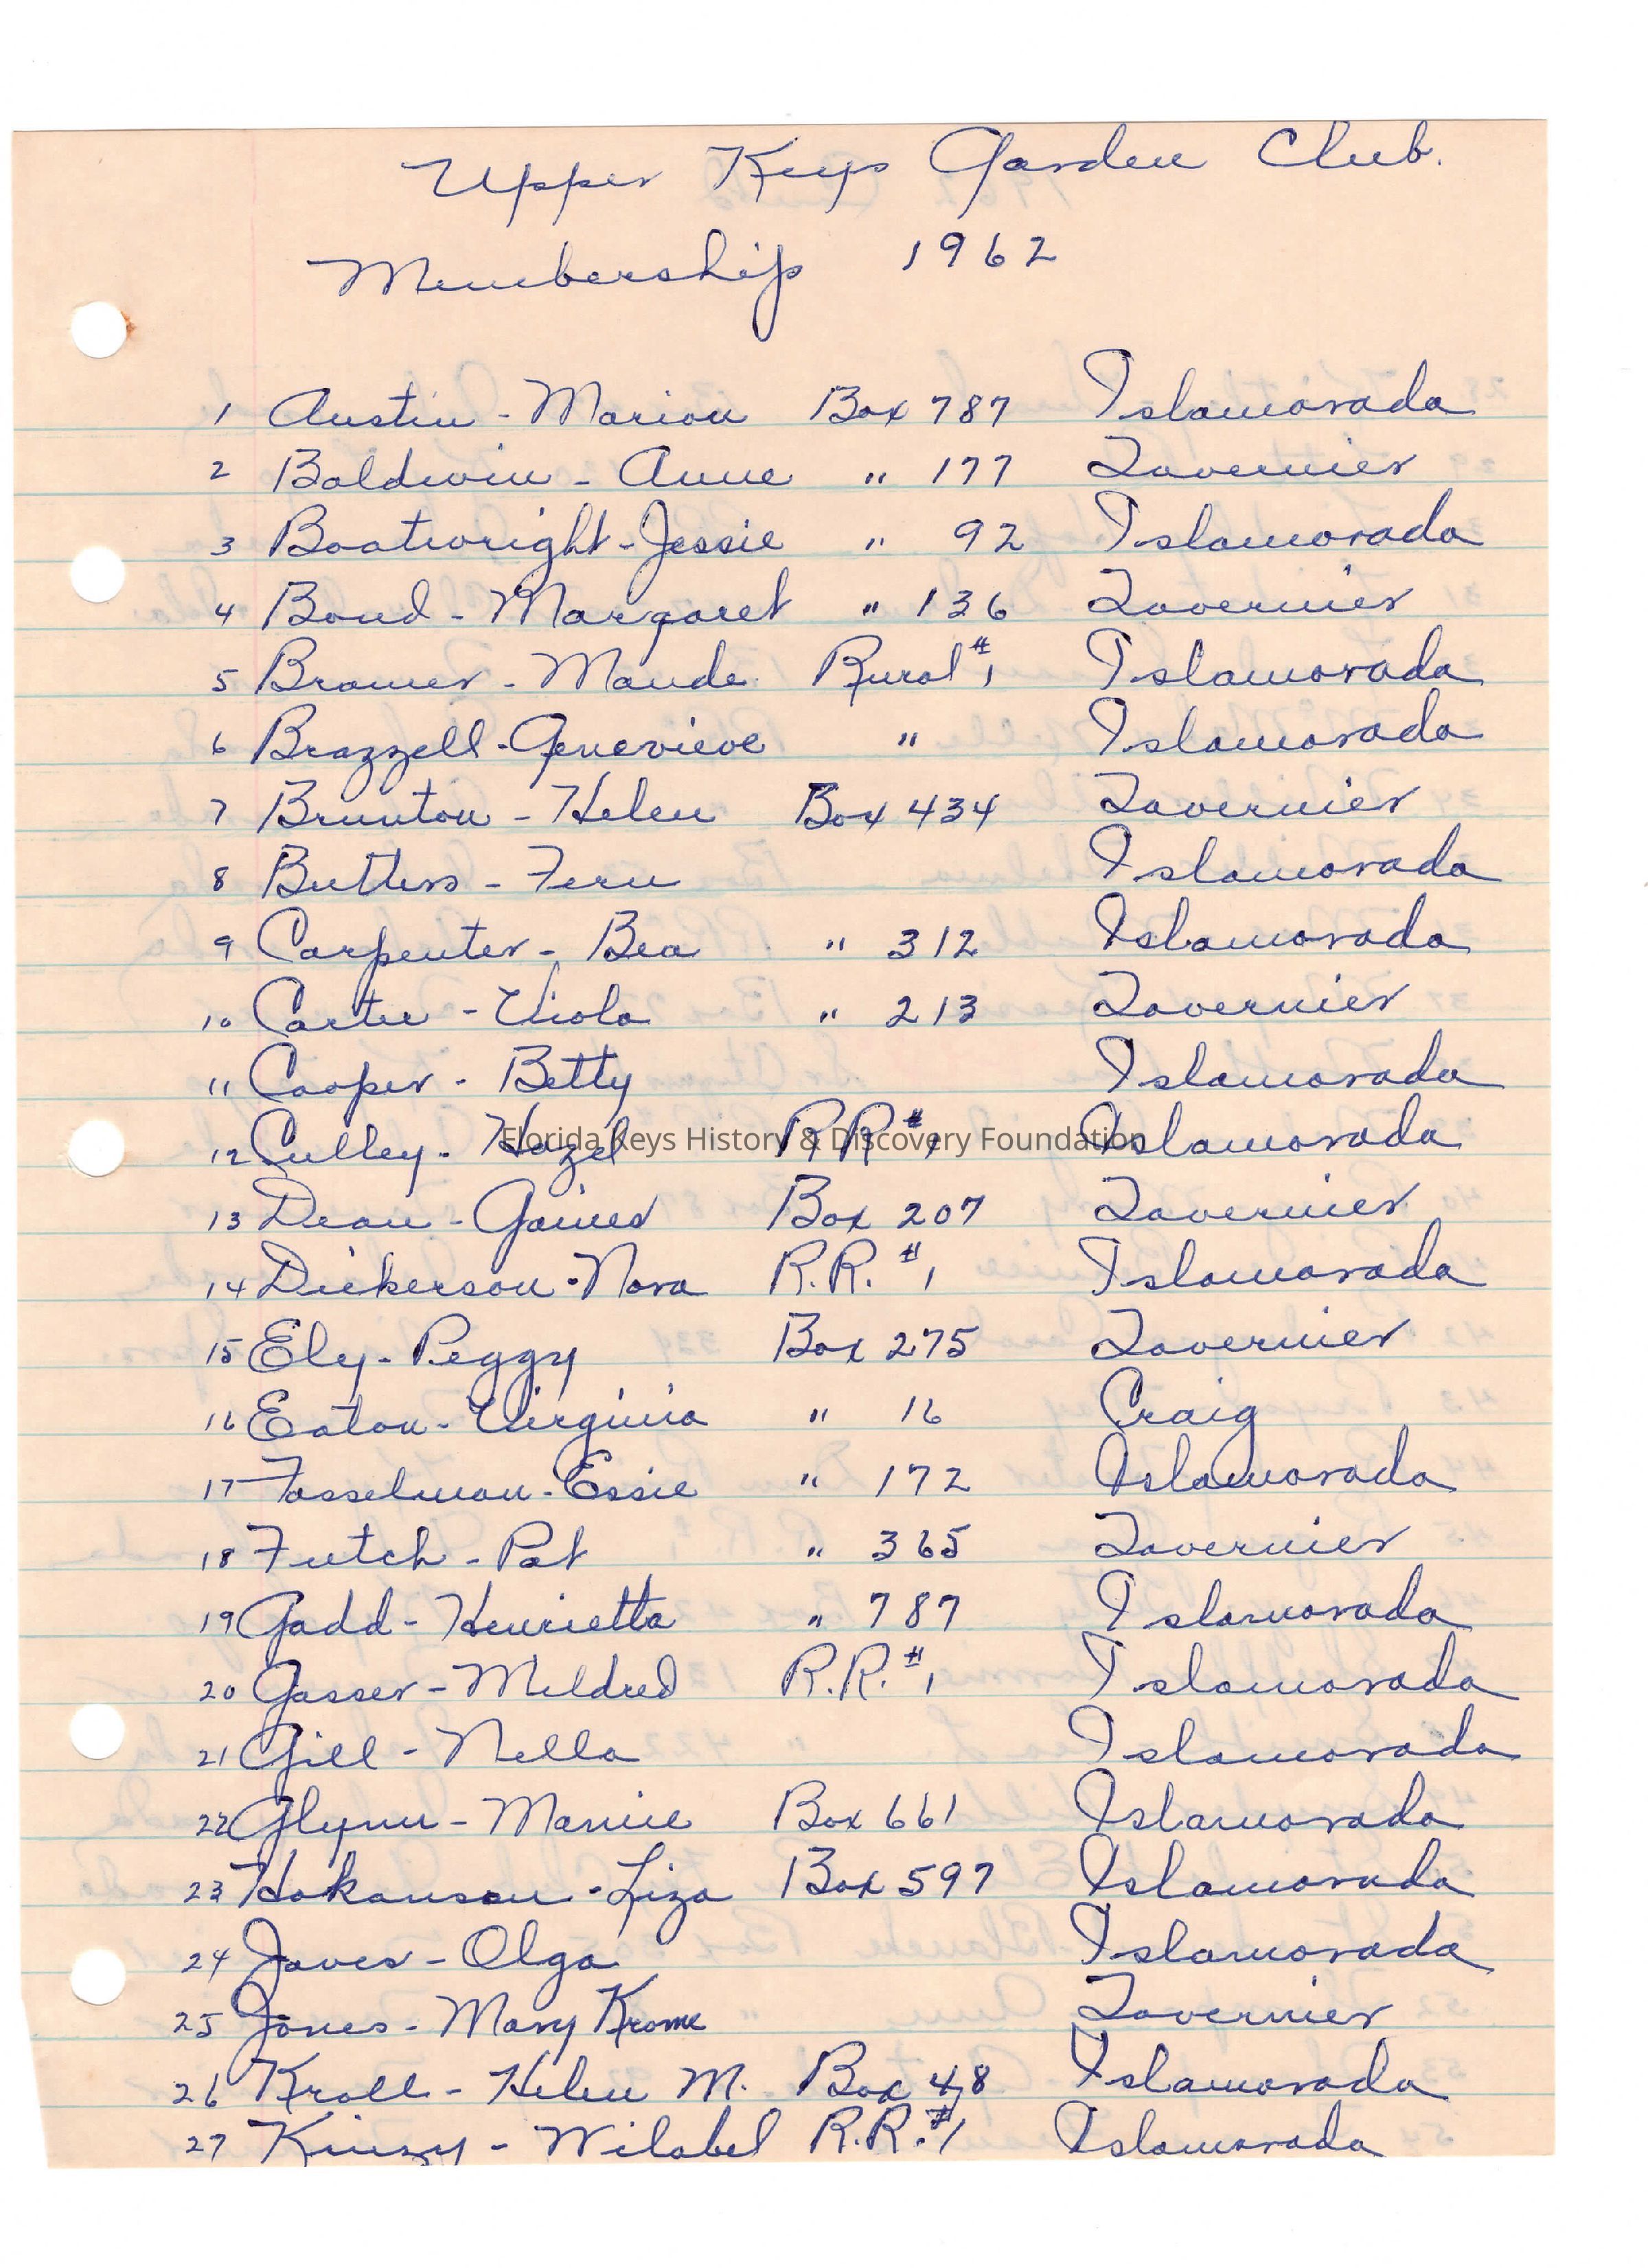 Upper Keys Garden Club.
Membership 1962
1 Austin - Marion Box 787 Islamorada
2 Baldwin - Anne " 177 Tavernier
3 Boatwright - Jessie " 92 Islamorada
4 Bond - Margaret " 136 Tavernier
5 Bramer - Maude Rural #1 Islamorada
6 Brazzell - Genevieve " Islamorada
7 Brunton - Helen Box 434 Tavernier
8 Butters - Fern Islamorada
9 Carpenter - Bea " 312 Islamorada
10 Carter - Viola " 213 Tavernier
11 Cooper - Betty Islamorada
12 Culley - Hazel R R #1 Islamorada
Florida Keys History & Discovery Foundation
13 Dean - Gaines Box 207 Tavernier
14 Dickerson - Nora R.R. #1 Islamorada
15 Ely - Peggy Box 275 Tavernier
16 Eaton - Virginia " 16 Craig
17 Fasselman - Essie " 172 Islamorada
18 Futch - Pat " 365 Tavernier
19 Gadd - Henrietta " 787 Islamorada
20 Gasser - Mildred R.R. #1 Islamorada
21 Gill - Nella Islamorada
22 Glynn - Box 661 Islamorada
23 Hokanson - Liza Box 597 Islamorada
24 Olga Islamorada
25 Jones - Mary Krome Tavernier
26 Kroll - Helen M. Box 48 Islamorada
27 Kinzy - Wilabel R.R. #1 Islamorada